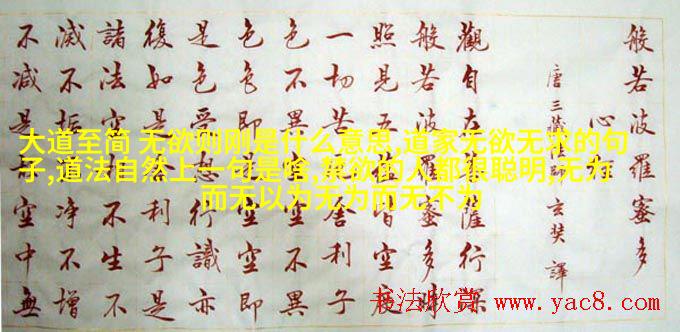 般若波羅蜜多
心經
唐三藏法師玄奘譯
觀自在菩薩行深
般若波羅蜜多時
照見五蘊皆空度
一切苦厄舍利子
色不異空空不異
色色即是空空即
是色受想行識亦
復如是舍利子是
諸法空相不生不
滅不垢不淨不增
不減是故空中無
大道至简 无欲则刚是什么意思,道家无欲无求的句
子,道法自然上一句是啥,禁欲的人都很聪明,无为
而无以为无为而无不为
书法欣赏 www.yac8.com